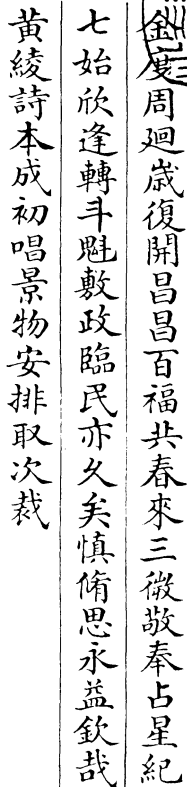 金度周廻歲復開昌昌百福共春來三微敬奉占星紀
七始欣逢轉斗魁敷政臨民亦久矣慎脩思永益欽哉
黃綾詩本成初唱景物安排取次裁